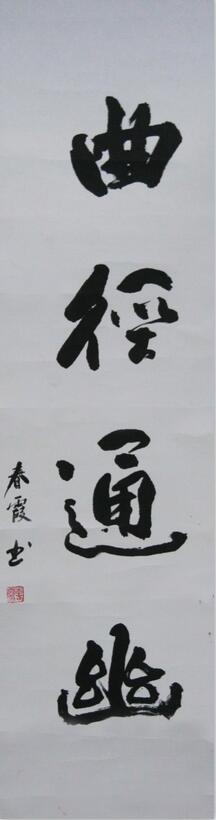 曲徑通幽
春霞书